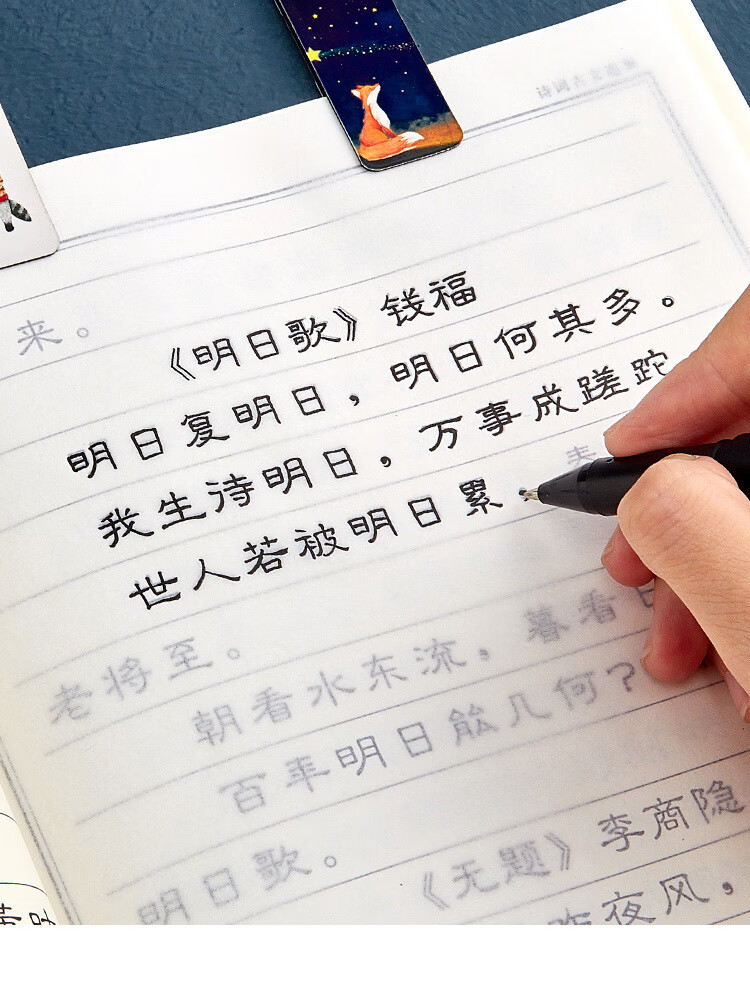 来。
《明日歌》钱福
明日复明日，明日何其多。
我生诗明日，万事成蹉跎
世人若被明日累
老将至。
朝看水东流，暮看日
百年明日能几何？
明日歌。
《无题》李商隐
昨夜风，